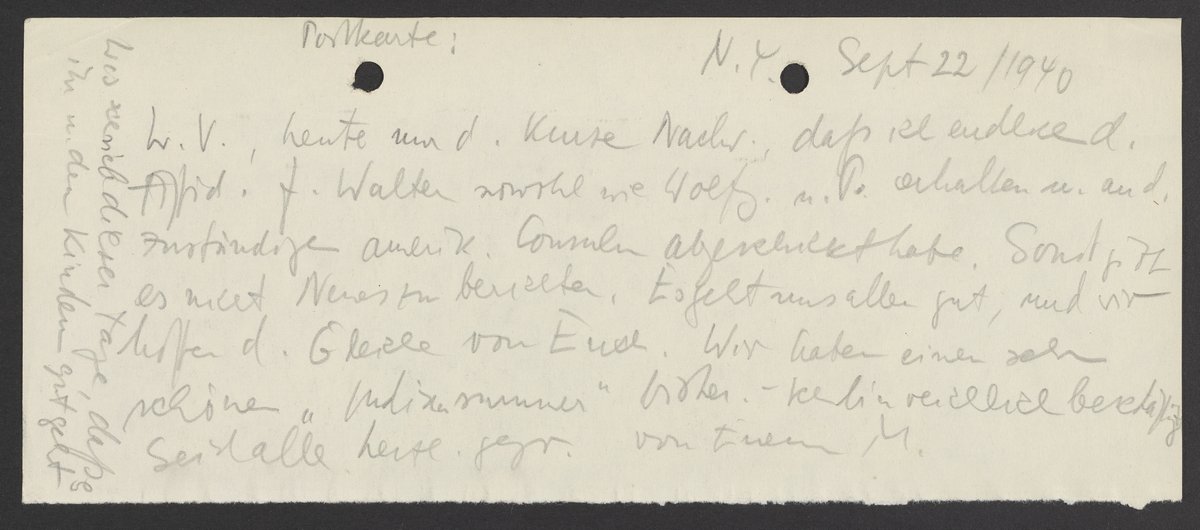 Postkarte:
N.Y. Sept 22/1940
L. V., heute nur d. kurze Nachr., daß ich endlich d.
Affid. f. Walter sowohl wie Wolfg. u. P. erhalten u. an d.
zuständigen amerik. Consuln abgeschickt habe. Sonst gibt
es nicht Neues zu berichten. Es geht uns allen gut, und wir
hoffen d. Gleiche von Euch. Wir haben einen sehr
schönen „Indian summer" bisher. - Ich bin reichlich beschäftigt
Seid alle herzl. gegr. von Eurem M.
dieser Tage, daß es
ihm u. den Kindern gut geht